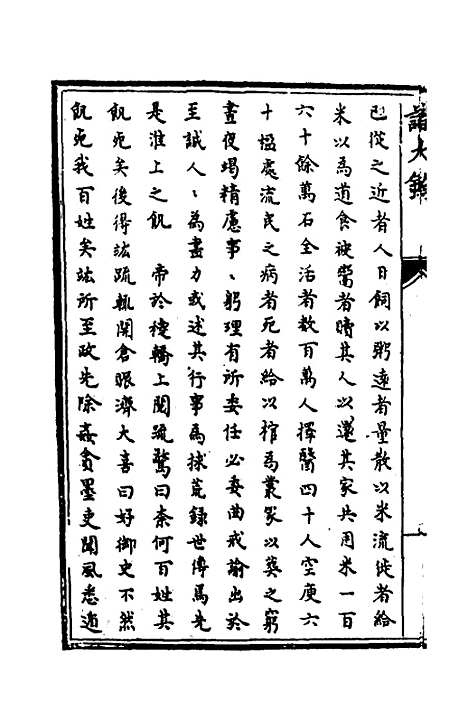 諸大綬
已從之近者人日飼以粥遠者量散以米流徙者給
米以為道食被鬻者贖其人以還其家共用米一百
六十餘萬石全活者數百萬人擇醫四十人空庾六
十楹處流民之病者死者給以棺為叢冢以葬之窮
晝夜竭精慮事、躬理有所委任必委曲戒諭出於
至誠人、為盡力或述其行事為捄荒錄世傳焉先
是淮上之飢　帝於棧轎上閱疏驚曰柰何百姓其
飢死矣後得竑疏輒開倉賑濟大喜曰好御史不然
飢死我百姓矣竑所至政先除姦貪墨吏聞風悉遁